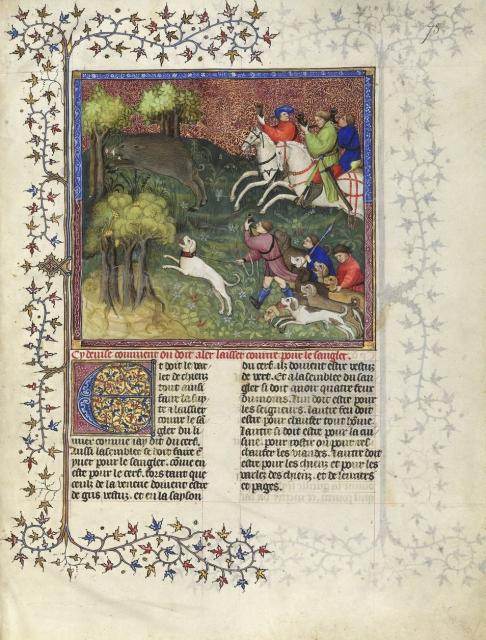 78
Cy deuise comment on doit aler laissier courre pour le sangler.
Et doit le var
let de chiens
tout ainsi
faire la suy
te a laissier
courre le sā
gler du li
mier comme iay dit du cerf.
Aussi lassemblee se doit faire
pour le sangler. cōme en
este pour le cerf. fors tant que
ceulz de la venue doiuent estre
de gris vestuz. et en la saison
du cerf. ilz doiuent estre vestuz
de vert. Et a lassemblee du san
gler si doit auoir quatre feux
du moins. lun doit estre pour
les seigneurs. lautre feu doit
estre pour chaufer tout hōme.
lautre si doit estre pour la cui
sine. pour rostir ou pour res
chaufer les viandes. lautre doit
estre pour les chiens et pour les
varlez des chiens. et de leuriers
et pages.